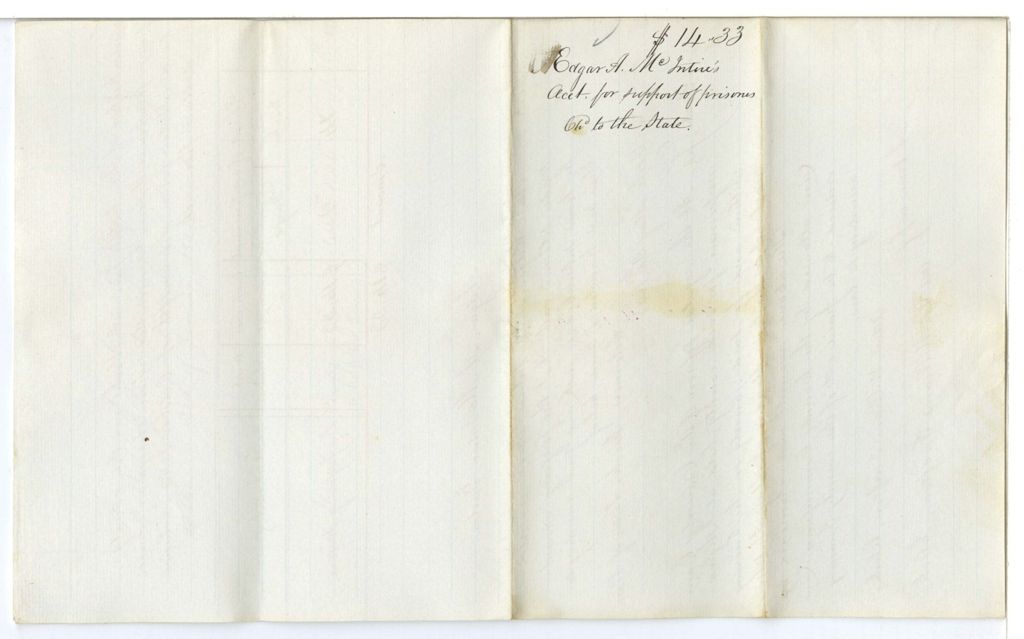 $ 14.33
Edgar A. McIntire's
Acct. for support of prisoners
Chd to the State.